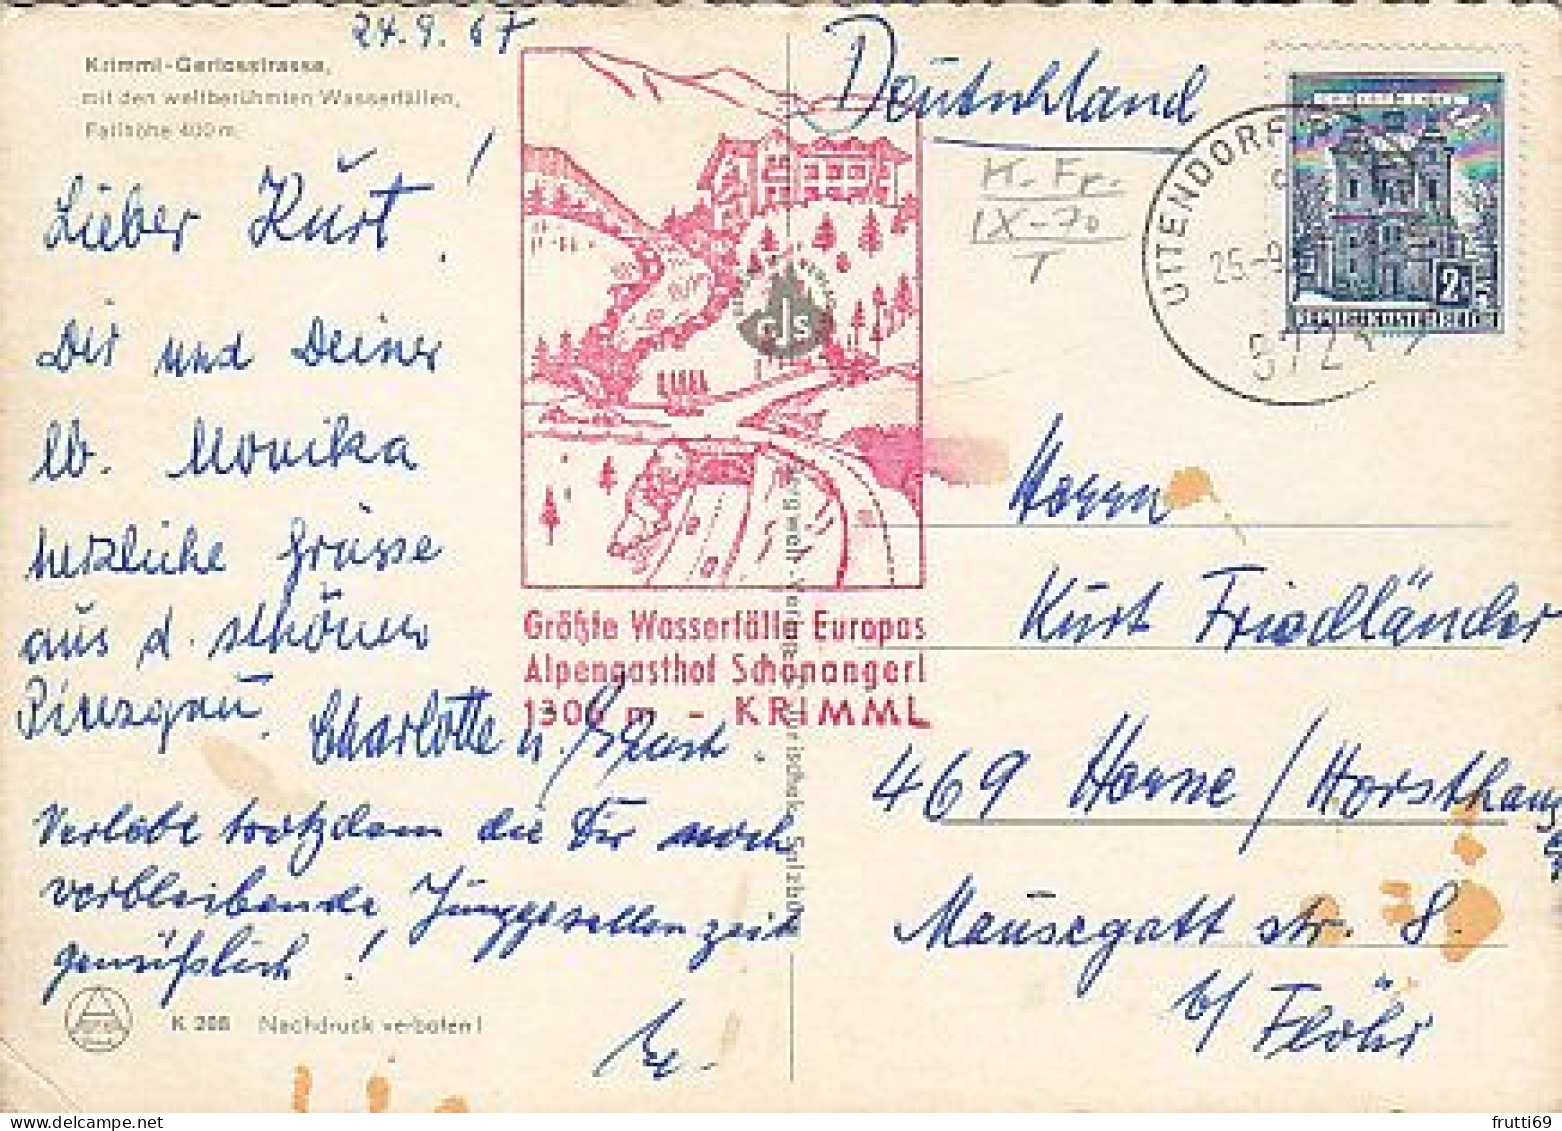 24.9.67
Krimml-Gerlosstrasse,
mit den weltberühmten Wasserfällen,
Fallhöhe 400 m.
Lieber Kurt!
Dir und Deiner
lb. Monika
herzliche Grüsse
aus d. schönen
Pinzgau.
Charlotte u. Ernst.
Verlebe trotzdem die Dir noch
verbleibende Junggesellenzeit
genüßlich!
K 208 Nachdruck verboten!
Größte Wasserfälle Europas
Alpengasthof Schönangerl
1300 m - KRIMML
Deutschland
K. Fr.
IX-70
T
UTTENDORF
25.-9.
5724
2
REPUBLIK ÖSTERREICH
Herrn
Kurt Friedländer
469 Herne / Horsthausen
Mausegatt str. 8.
b/ Flöhr
frutti69